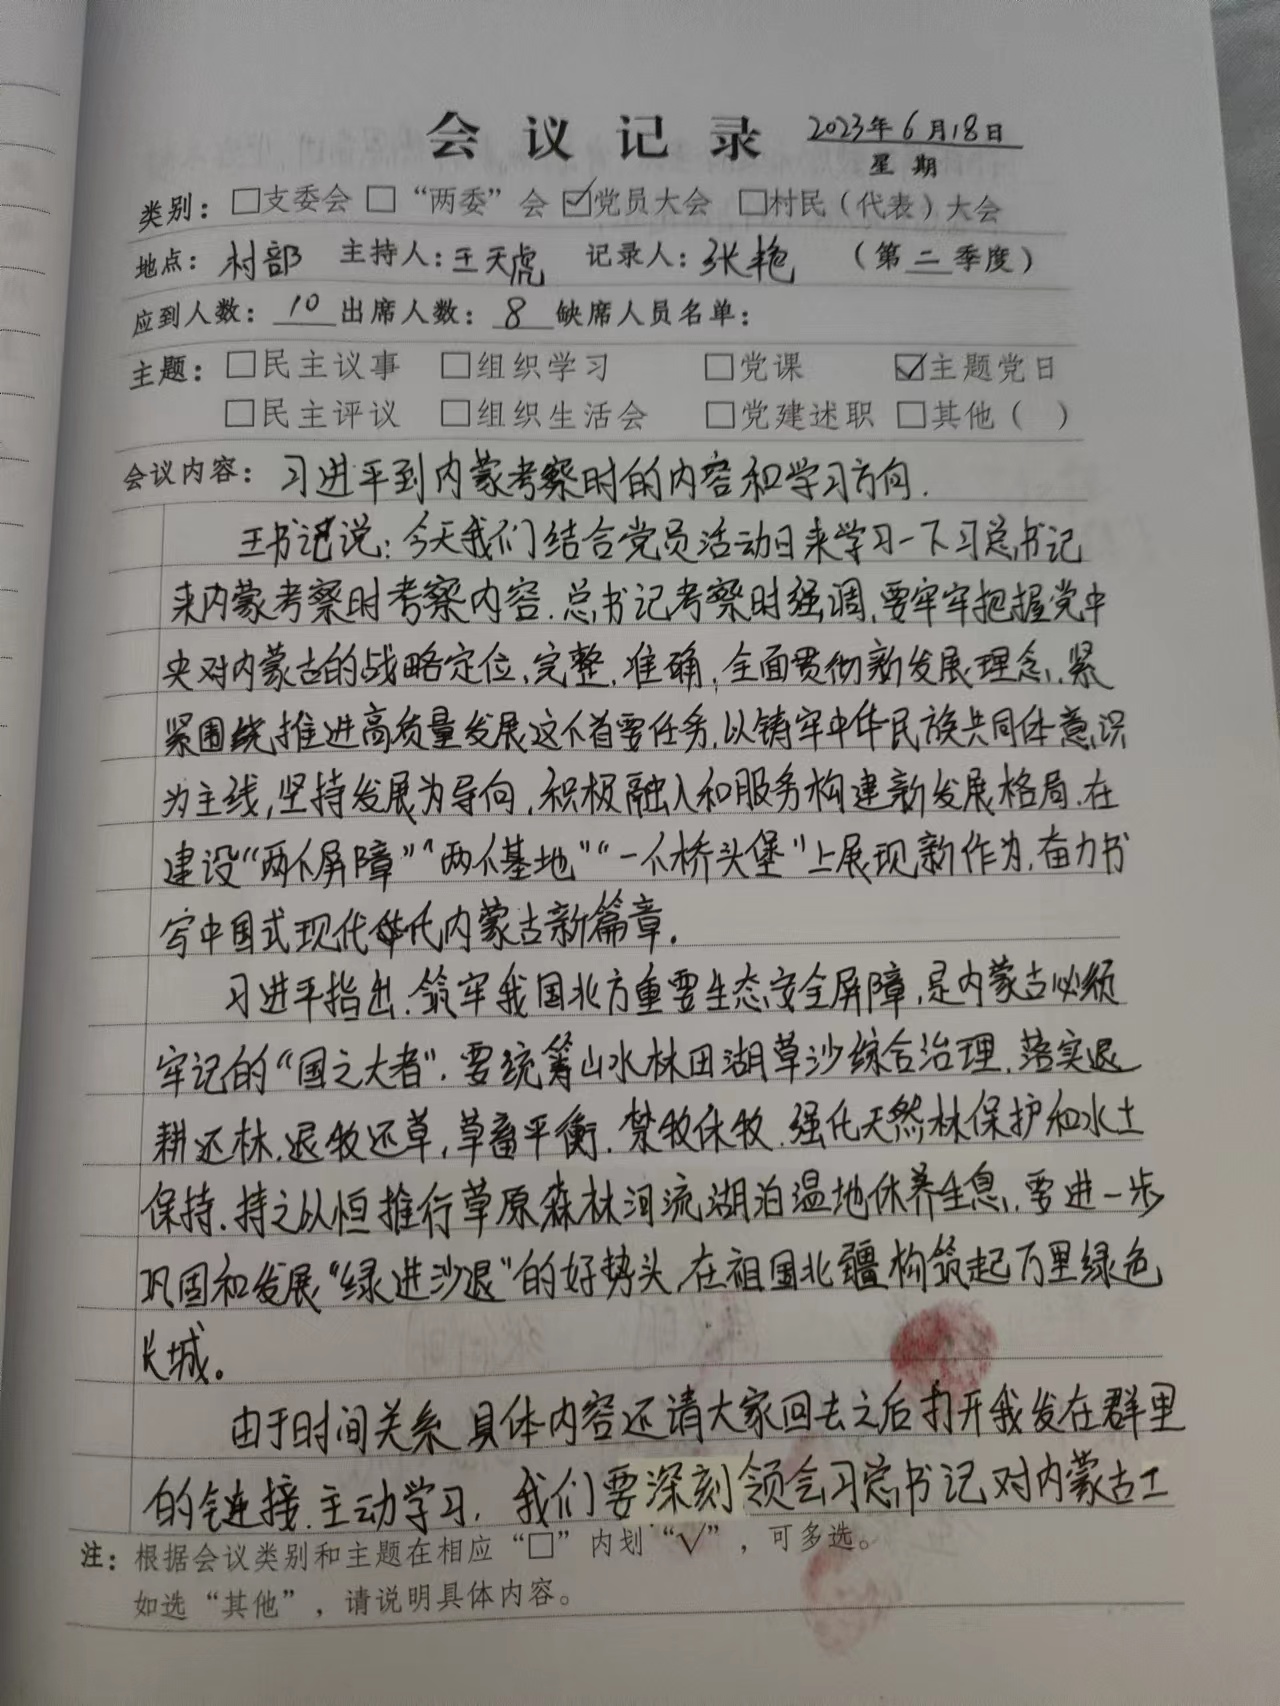 会议记录 2023年6月18日
星期
类别：□支委会 □“两委”会 ☑党员大会 □村民（代表）大会
地点：村部 主持人：王天虎 记录人：张艳 （第二季度）
应到人数：10 出席人数：8 缺席人员名单：
主题：□民主议事 □组织学习 □党课 ☑主题党日
□民主评议 □组织生活会 □党建述职 □其他（ ）
会议内容：习进平到内蒙考察时的内容和学习方向.
王书记说：今天我们结合党员活动日来学习一下习总书记
来内蒙考察时考察内容.总书记考察时强调,要牢牢把握党中
央对内蒙古的战略定位,完整.准确,全面贯彻新发展理念,紧
紧围绕推进高质量发展这个首要任务,以铸牢中华民族共同体意识
为主线,坚持发展为导向,积极融入和服务构建新发展格局.在
建设“两个屏障”“两个基地”“一个桥头堡”上展现新作为,奋力书
写中国式现代化内蒙古新篇章.
习进平指出.筑牢我国北方重要生态安全屏障,是内蒙古必须
牢记的“国之大者”.要统筹山水林田湖草沙综合治理.落实退
耕还林.退牧还草,草畜平衡.禁牧休牧.强化天然林保护和水土
保持.持之以恒推行草原森林河流湖泊温地休养生息,要进一步
巩固和发展“绿进沙退”的好势头,在祖国北疆构筑起万里绿色
长城。
由于时间关系,具体内容还请大家回去之后打开我发在群里
的链接.主动学习. 我们要深刻领会习总书记对内蒙古工
注：根据会议类别和主题在相应“□”内划“√”，可多选。
如选“其他”，请说明具体内容。